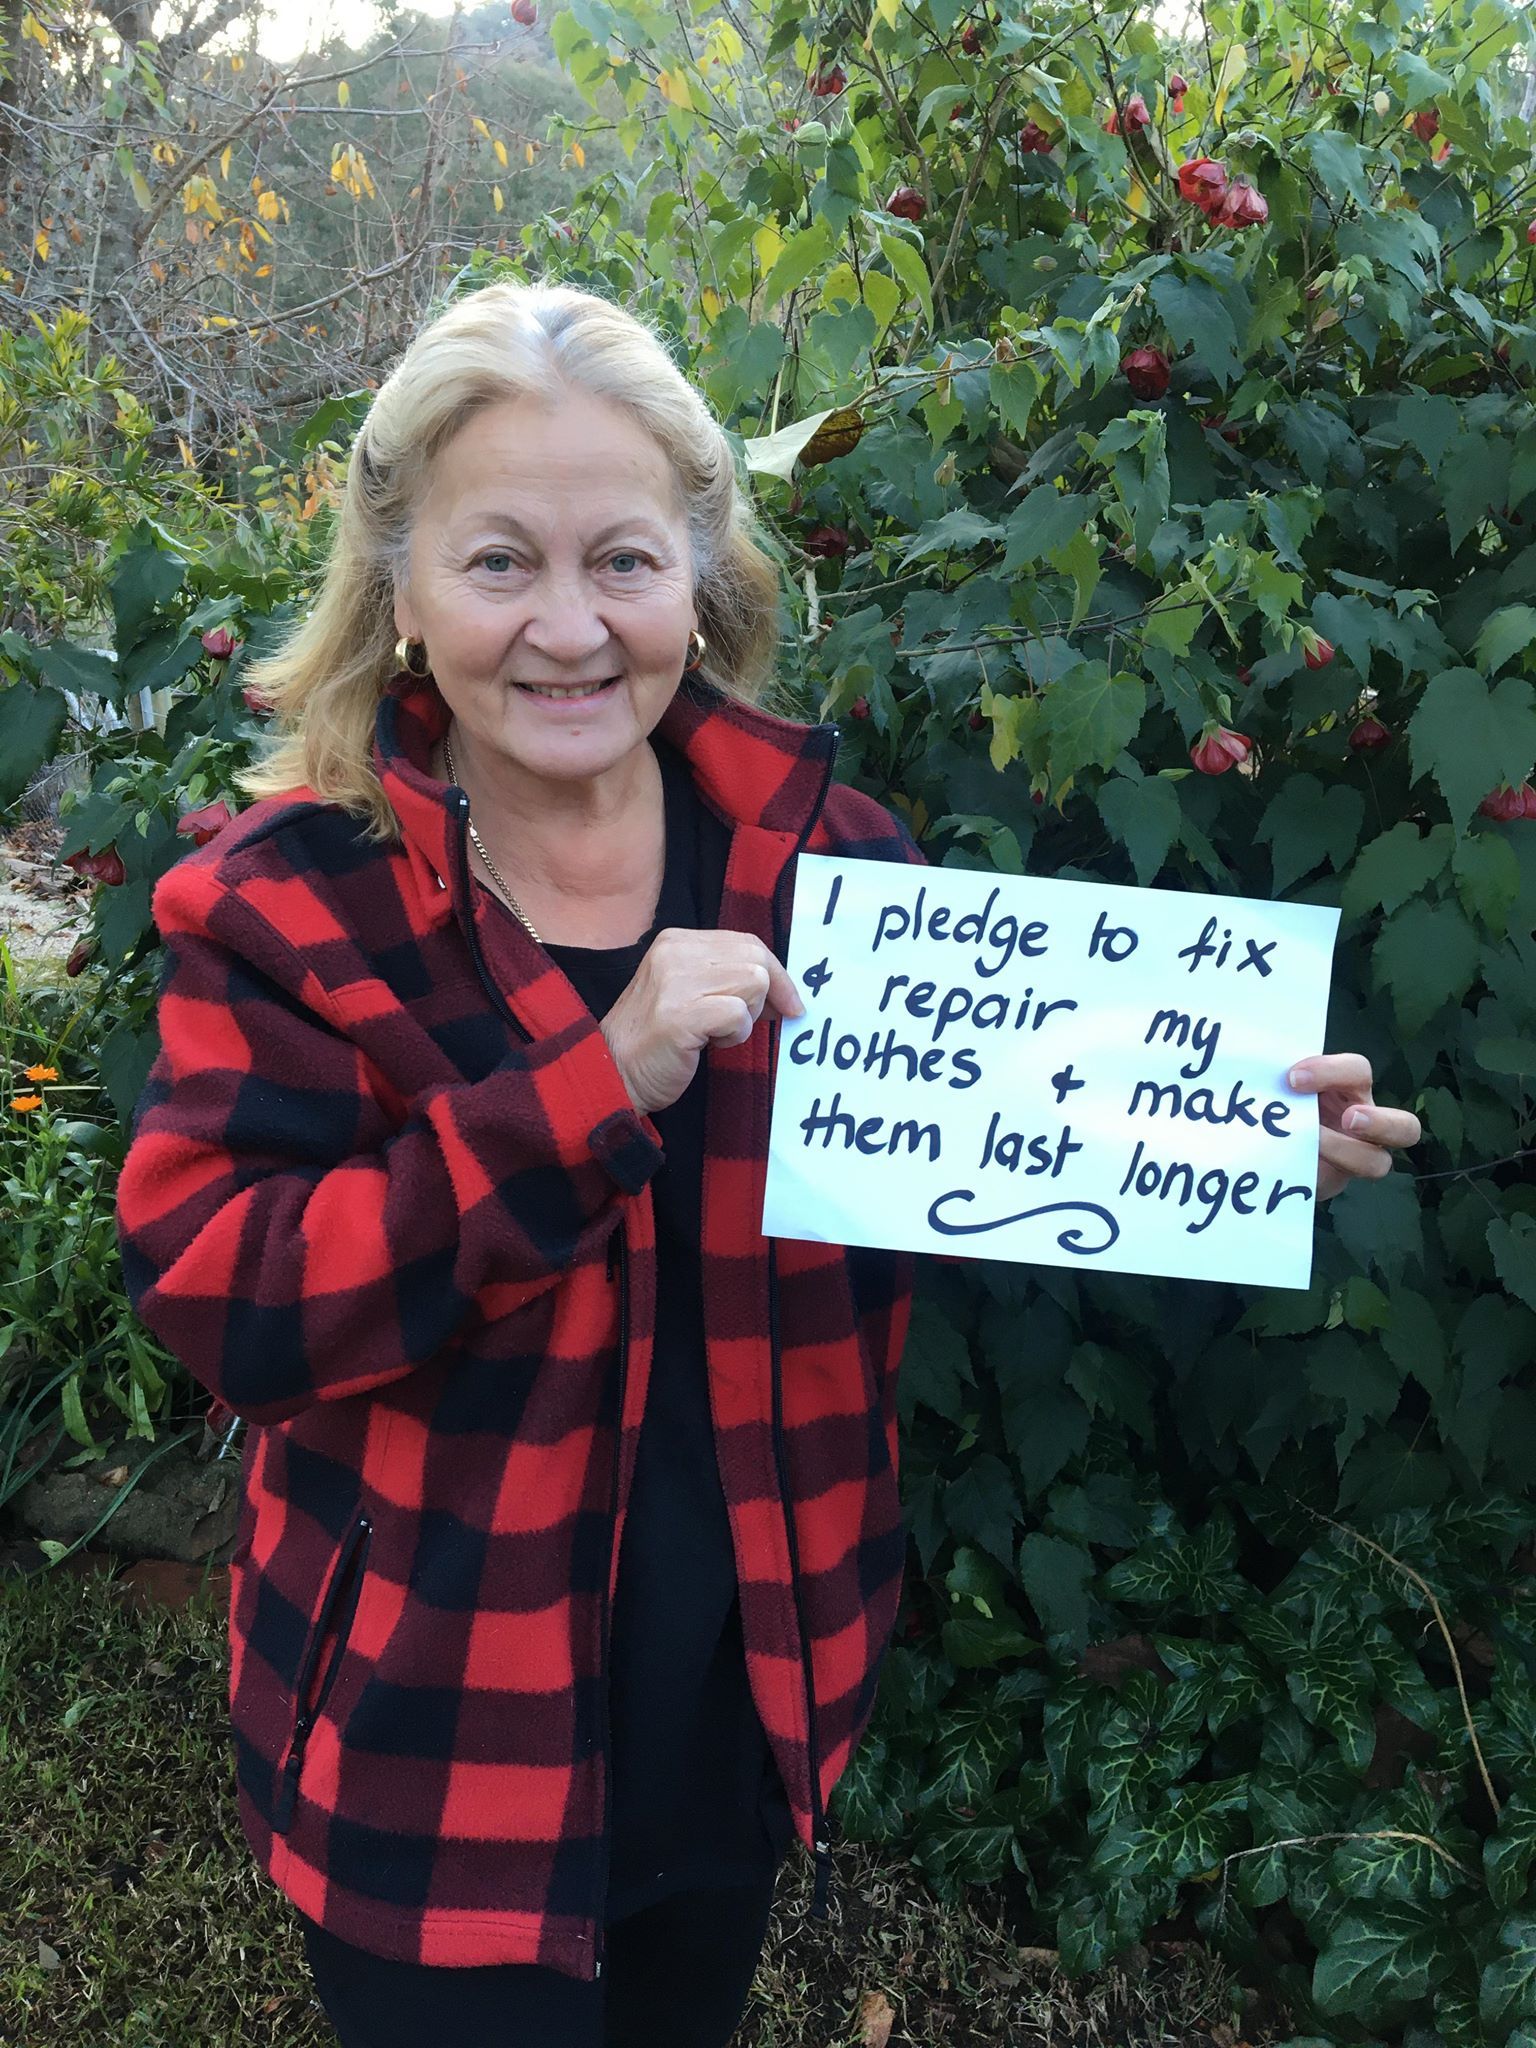 I pledge to fix
& repair my
clothes & make
them last longer